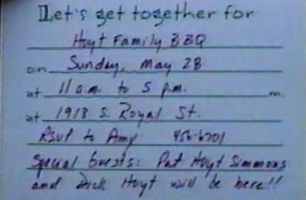 Let's get together for
Hoyt Family BBQ
on Sunday, May 28
at 11 a.m. to 5 p.m. m.
at 1918 S. Royal St.
RSVP to Amy 456-6701
Special Guests: Pat Hoyt Simmons
and Dick Hoyt will be here!!